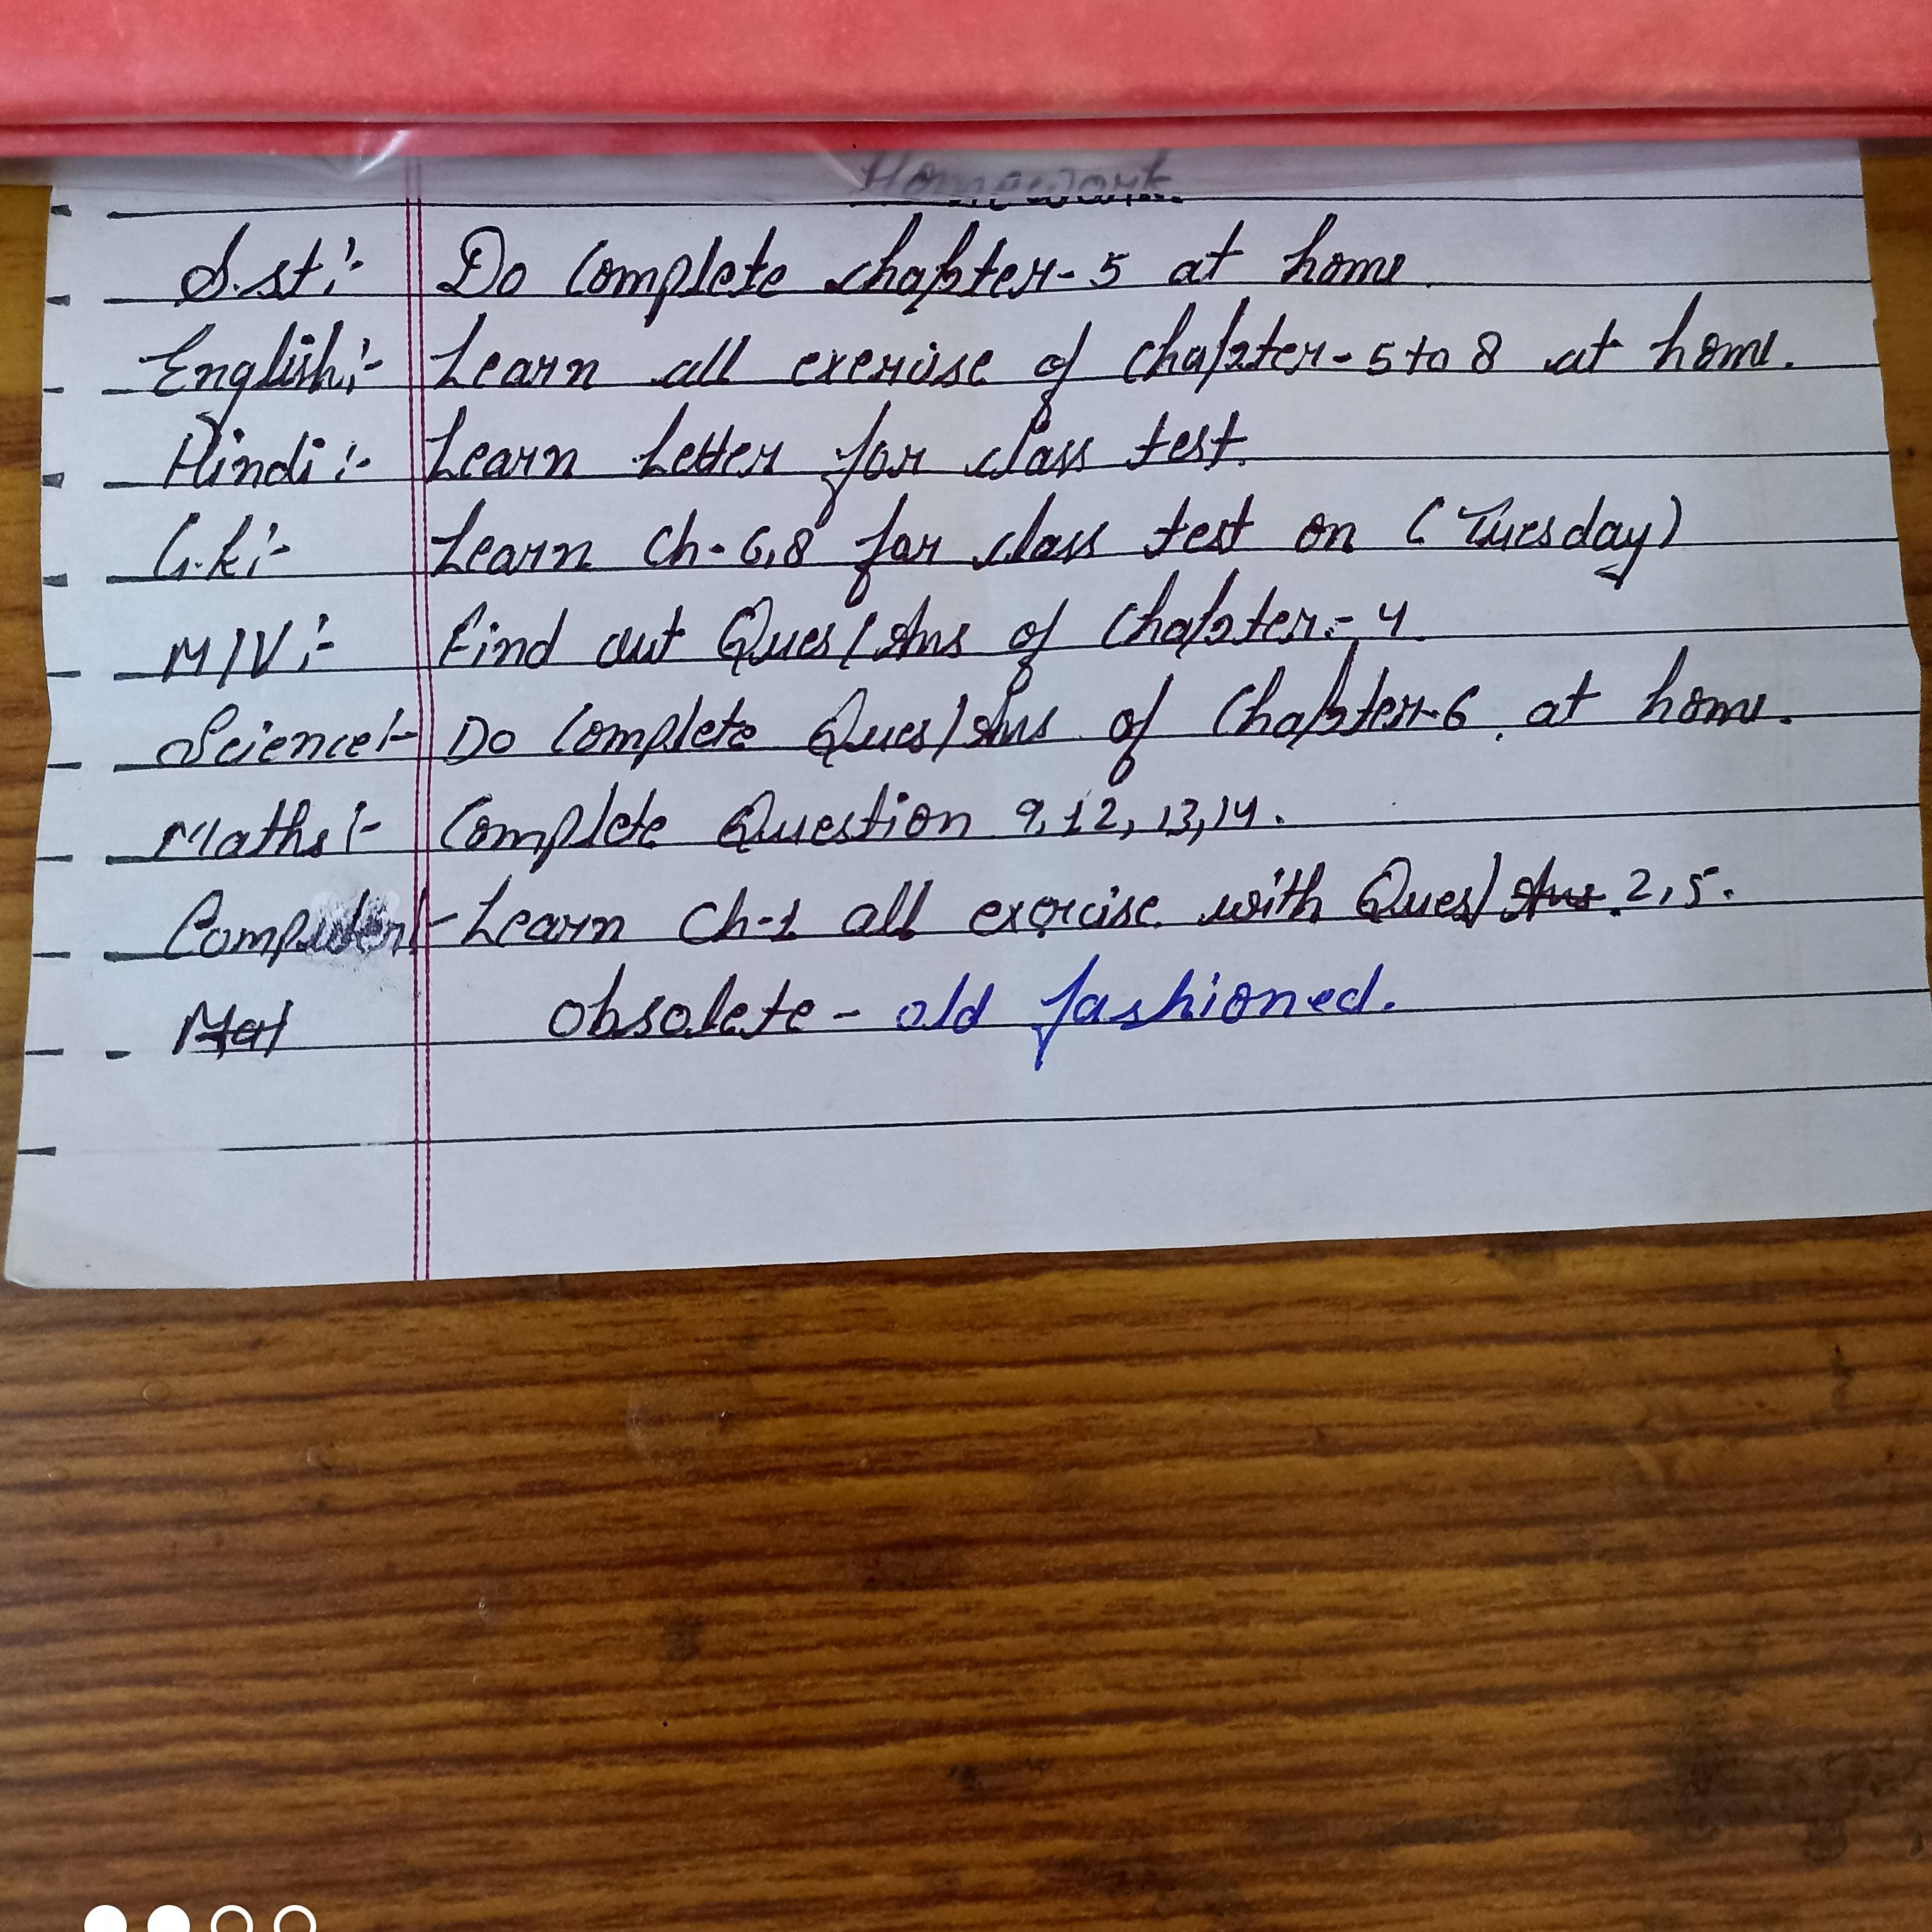 Homework.
S.st:- Do Complete chapter-5 at home.
English:- Learn all exercise of Chapter-5 to 8 at home.
Hindi:- Learn Letter for class test.
G.k:- Learn Ch-6,8 for class test on (Tuesday)
M/V:- Find out Ques/Ans of Chapter-4.
Science:- Do Complete Ques/Ans of Chapter-6 at home.
Maths:- Complete Question 9,12,13,14.
Computer:- Learn Ch-1 all exercise with Ques/Ans 2,5.
Mat obsolete- old fashioned.